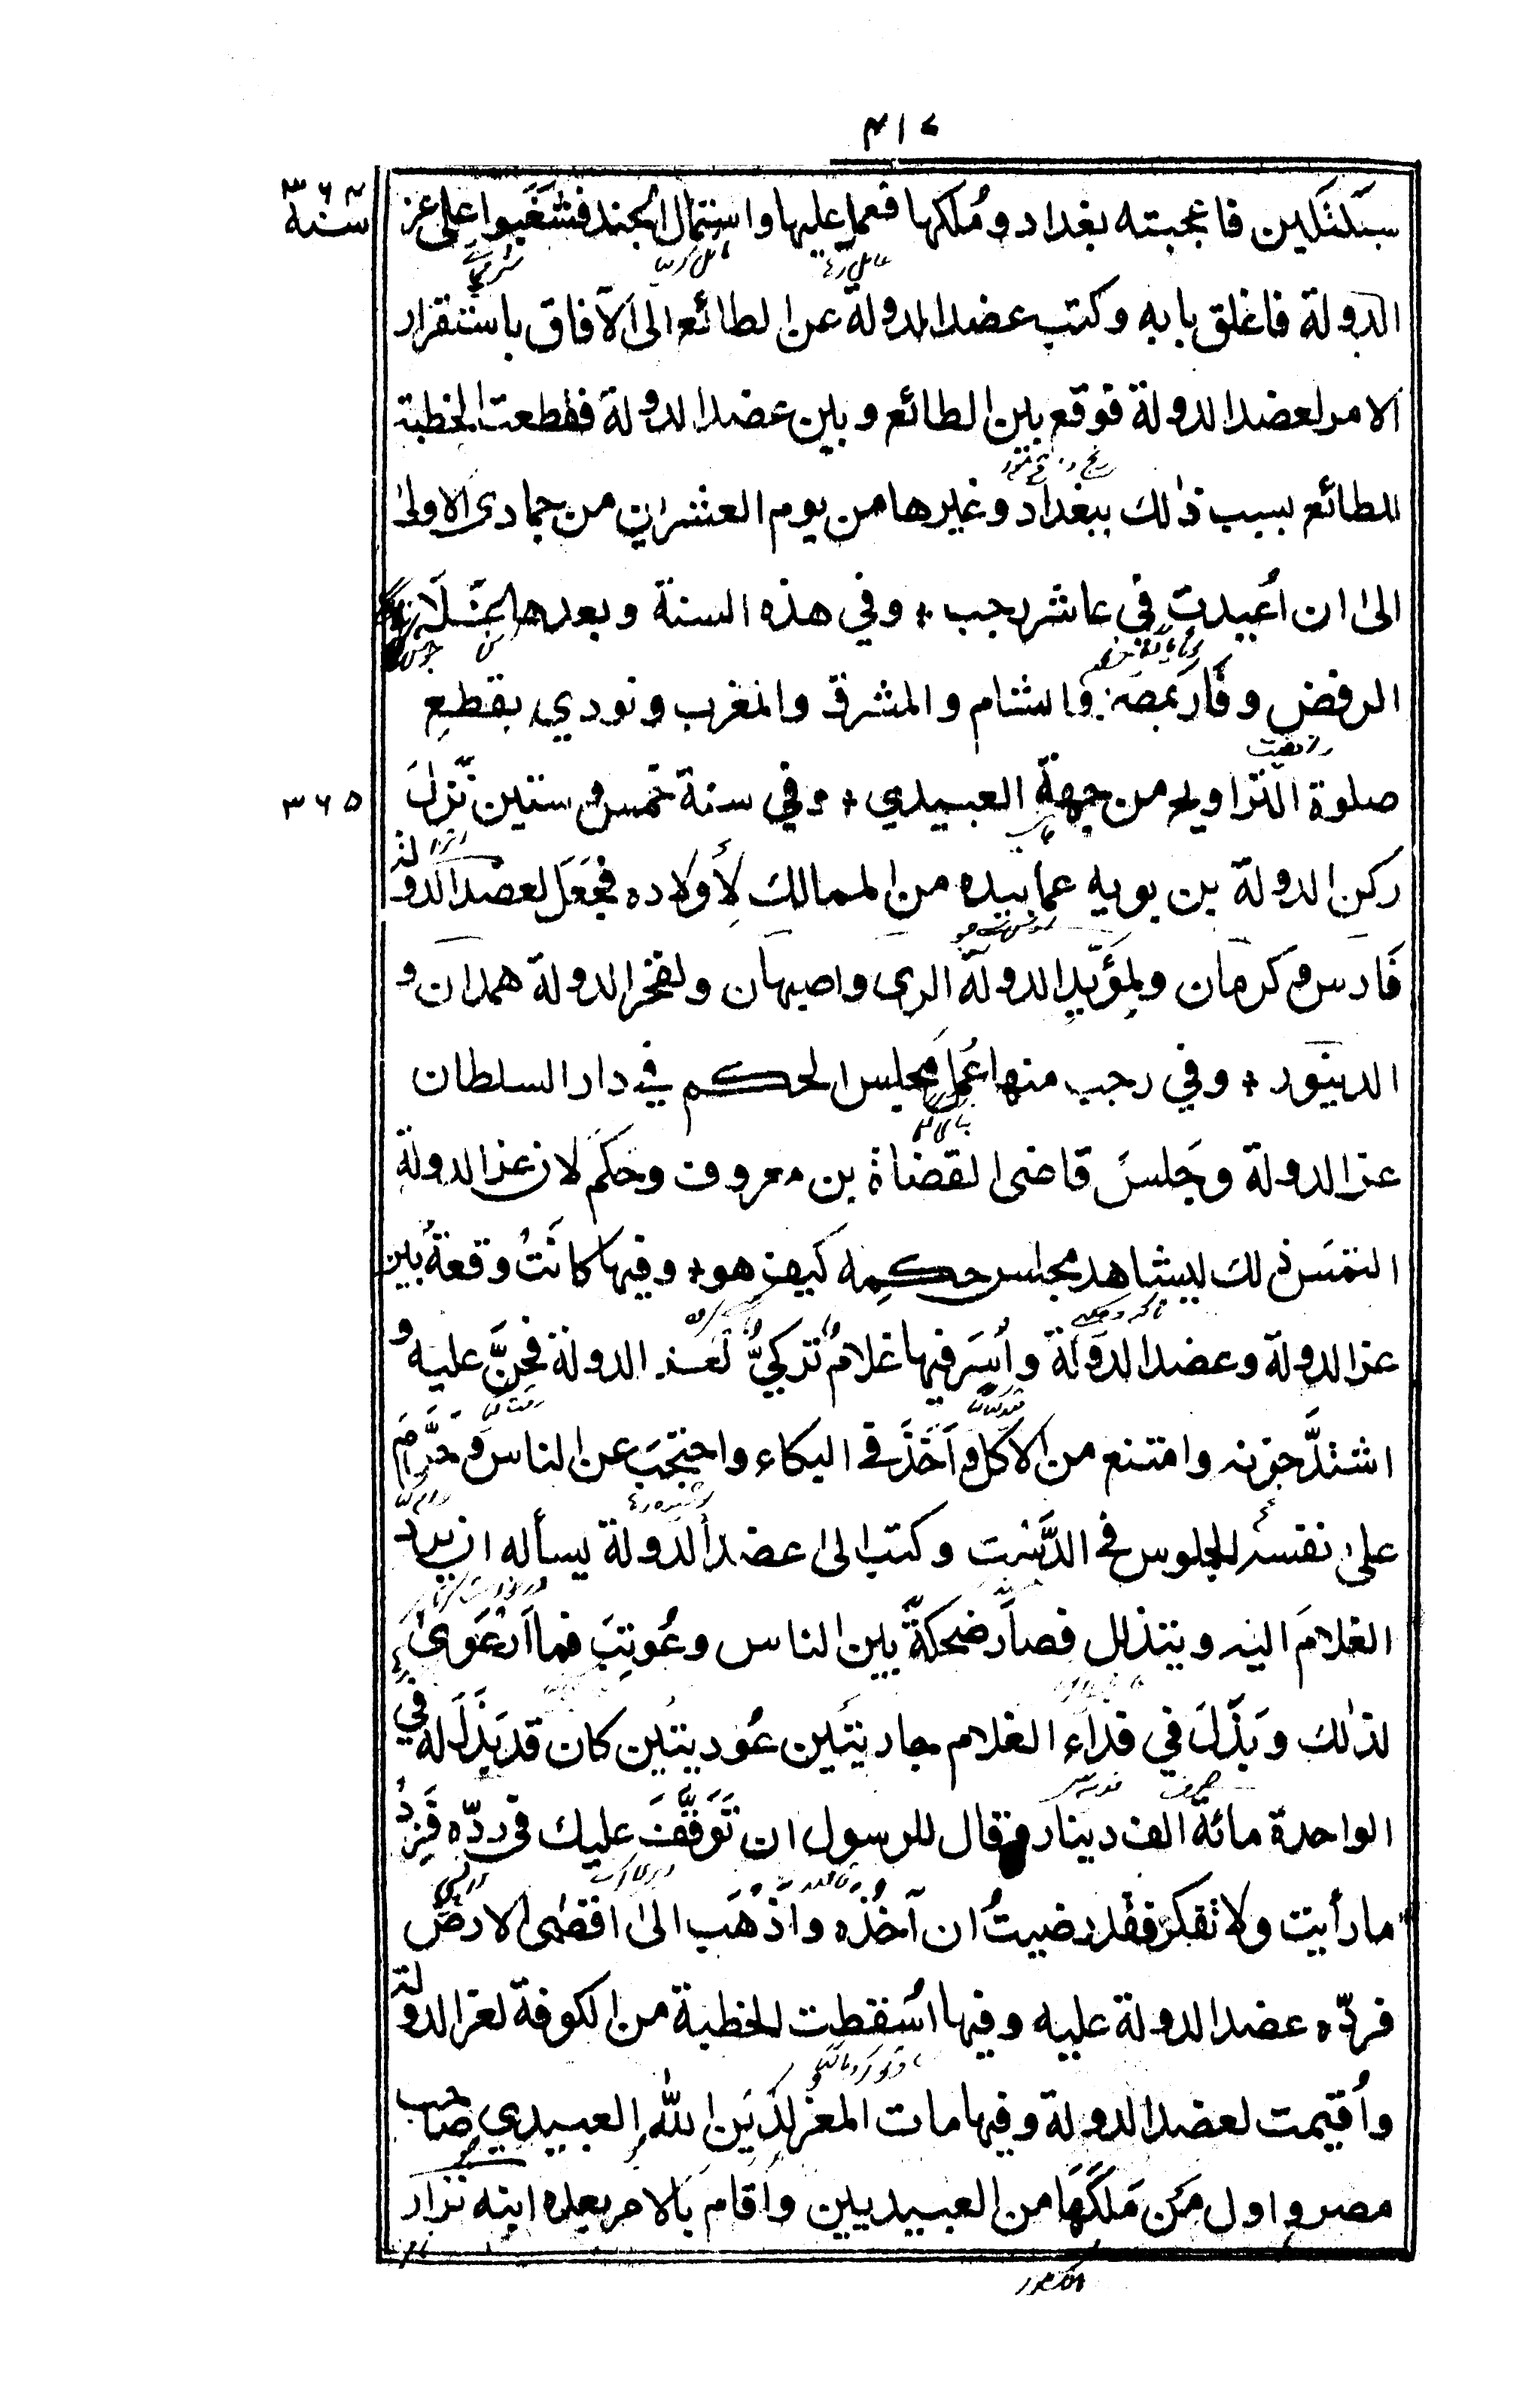 ٤١٧
سنة ٣٦٤
سبكتكين فاعجبته بغداد ومُلكها فعمل عليها واستمال الجند فشَغَبوا على عز
الدولة فاغلق بابه وكتب عضد الدولة عن الطائع الى الآفاق باستقرار
الامر لعضد الدولة فوقع بين الطائع وبين عضد الدولة فقطعت الخطبة
للطائع بسبب ذٰلك ببغداد وغيرها من يوم العشرين من جمادى الاولىٰ
الىٰ ان أُعيدت في عاشر رجب + وفي هذه السنة وبعدها
الرفض وفار بمصر والشام والمشرق والمغرب ونودي بقطع
صلوة التراويح من جهة العبيدي + وفي سنة خمس وستين نَزَلَ
٣٦٥
ركن الدولة بن بويه عما بيده من الممالك لأولاده فجَعَلَ لعضد الدولة
فارس وكرمان ولمؤيّد الدولة الرى واصبهان ولفخر الدولة همدان و
الدينور + وفي رجب منها عُمل مجلس الحكم في دار السلطان
عز الدولة وجَلسَ قاضى القضاة بن معروف وحكم لان عز الدولة
التمَسَ ذلك ليشاهد مجلس حكمه كيف هو + وفيها كانَتْ وقعةٌ بين
عز الدولة وعضد الدولة وأُسِرَ فيها غلامٌ تركيٌّ لعز الدولة فجُنَّ عليه و
اشتدَّ حزنه وامتنع من الاكل وأَخَذَ في البكاء واحتجَبَ عن الناس وحَرَّمَ
علىٰ نفسه الجلوس في الدَّست وكتب الىٰ عضد الدولة يسأله ان يرد
الغلامَ اليه ويتذلل فصار ضحكةً بين الناس وعُوتِبَ فما ارْعَوىٰ
لذٰلك وبَذَلَ في فداء الغلام جاريتَين عُوديتَين كان قد بَذَلَ له في
الواحدة مائة الف دينار وقال للرسول ان تَوَقَّفَ عليك في ردّه فَزِدْ
ما رأيت ولا تفكر فقد رضيتُ ان آخُذه واذْهَب الىٰ اقصٰى الارض
فردّه عضد الدولة عليه وفيها اُسقطت الخطبة من الكوفة لعز الدولة
وأُقيمت لعضد الدولة وفيها مات المعز لدين الله العبيدي صاحب
مصر واول مَن مَلَكَها من العبيديين واقام بالامر بعده ابنه نزار